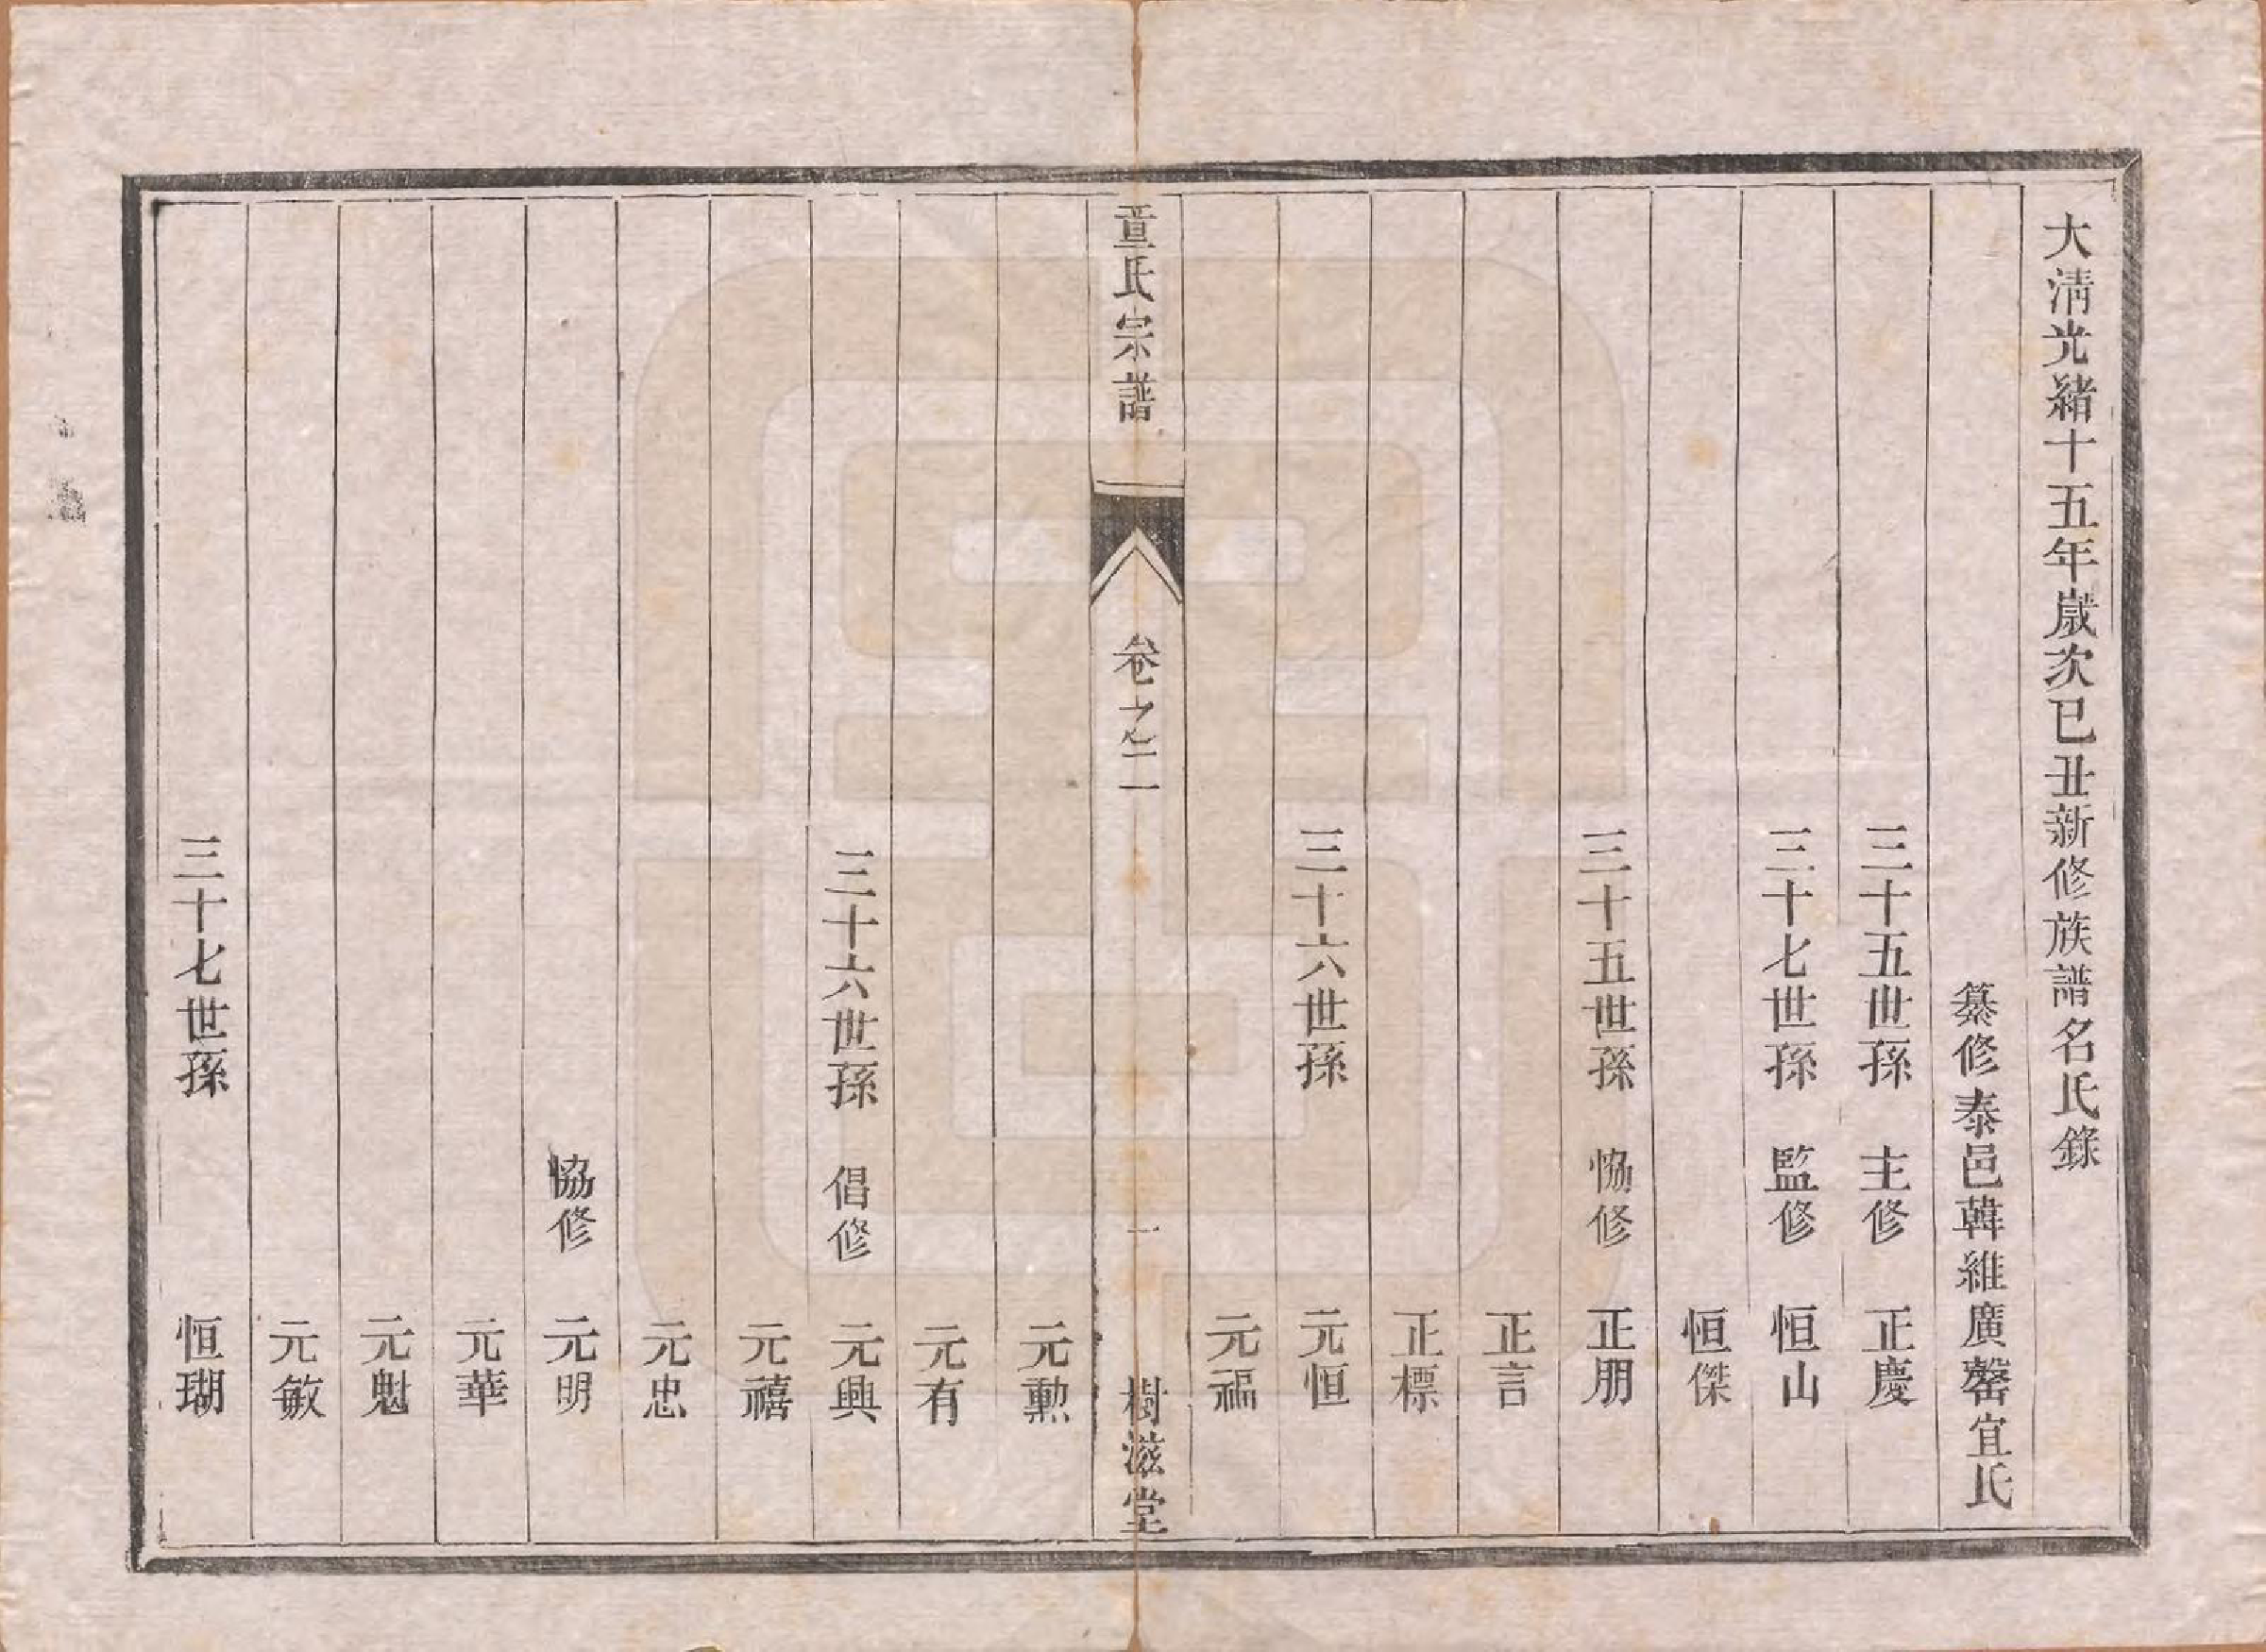 大淸光緖十五年歲次已丑新修族譜名氏錄
纂修泰邑韓維廣罄宜氏
三十五世孫 主修 正慶
三十七世孫 監修 恒山
恒傑
三十五世孫 恊修 正朋
正言
正標
三十六世孫 元恒
元福
童氏宗譜 卷之二 一 樹滋堂
元勲
元有
三十六世孫 倡修 元興
元禧
元忠
恊修 元明
元華
元魁
元敏
三十七世孫 恒瑚